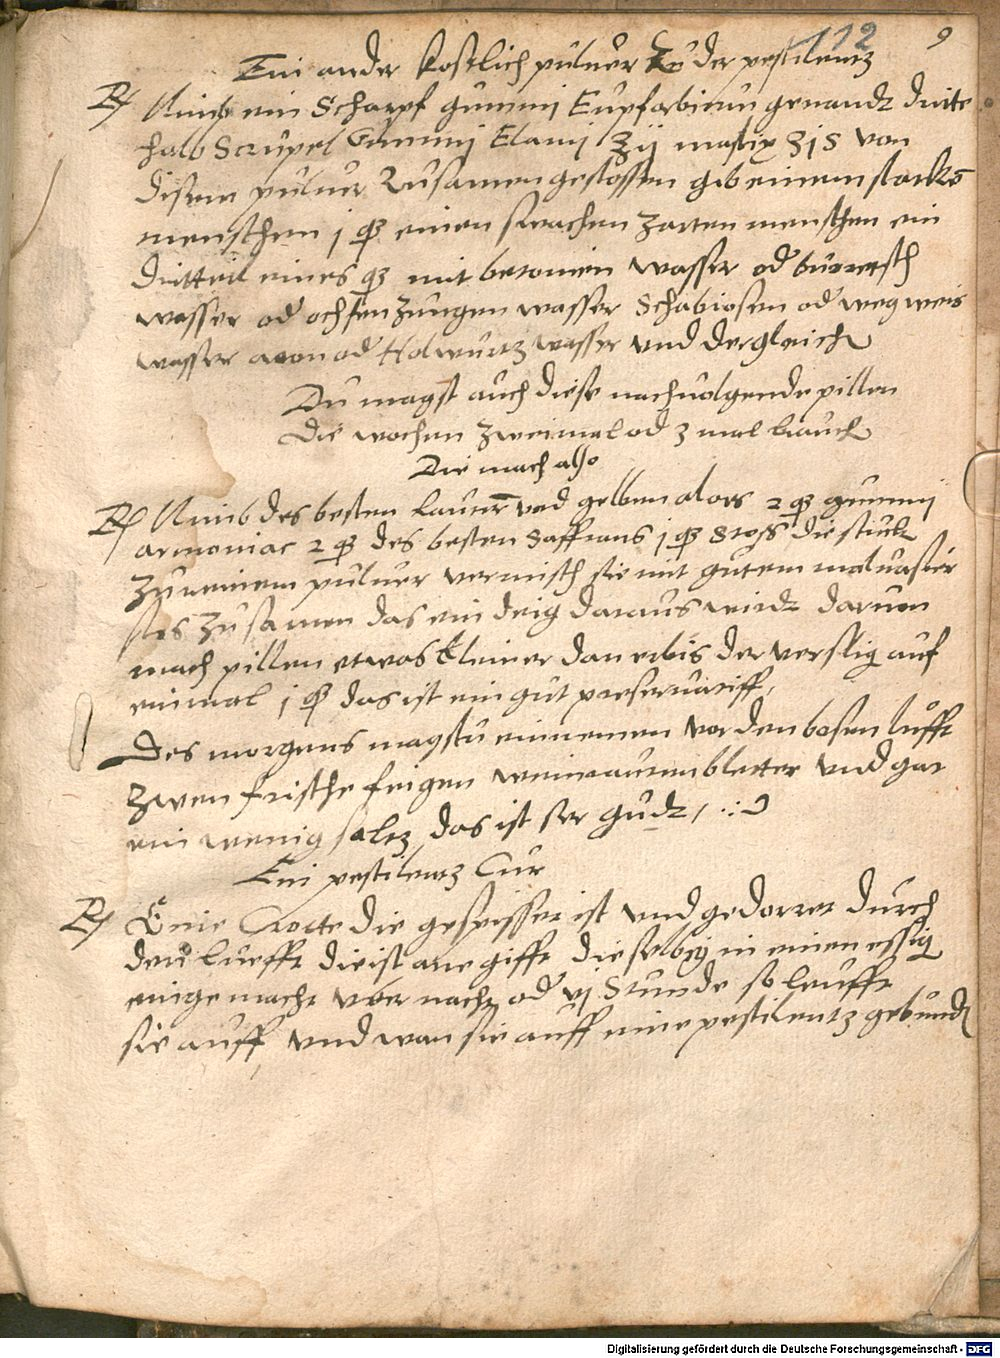 112 9
Ein ander kostlich puluer zu der pestilentz
Rx Nimb ein scharpf gummi Eupforbium genandt drite
halb Scrupel Gummi Elami ʒij mastix ʒjs von
disem puluer zusamen gestossen gib einem starkē
menschen j qͦ einen swachen zarten menschen ein
dritteil eines qͦ mit betonien wasser od burretsch
wasser od ochsenzungen wasser Schabiosen od wegweis
wasser aron od Holwurtz wasser vnd dergleich
Du magst auch diese nachuolgende pillen
Die wochen zweimal od 3 mal brauch
Die mach also
Rx Nimb des besten lauter vnd gelben aloes 2 qͦ gummi
armoniac 2 qͦ des besten saffrans j qͦ stoss die stuck
zu einem puluer vermisch sie mit gutem maluasier
stos zusamen das ein deig daraus wirdt daruon
mach pillen etwas kleiner dan erbis der verslig auf
einmal j qͦ das ist ein gut preseruatiff,
Des morgens magstu einnemen vor den bosen lufft
zwen frische feigen weinrauten bletter vnd gar
ein wenig saltz das ist ser gudt,
Ein pestilentz Cur
Rx Eine Crotte die gespisset ist vnd gedorret durch
den lufft die ist ane gifft dieselbig in einen essig
eingemacht vber nacht od vj Stunde so leufft
sie auff vnd wan sie auff eine pestilentz gebund
Digitalisierung gefördert durch die Deutsche Forschungsgemeinschaft - DFG